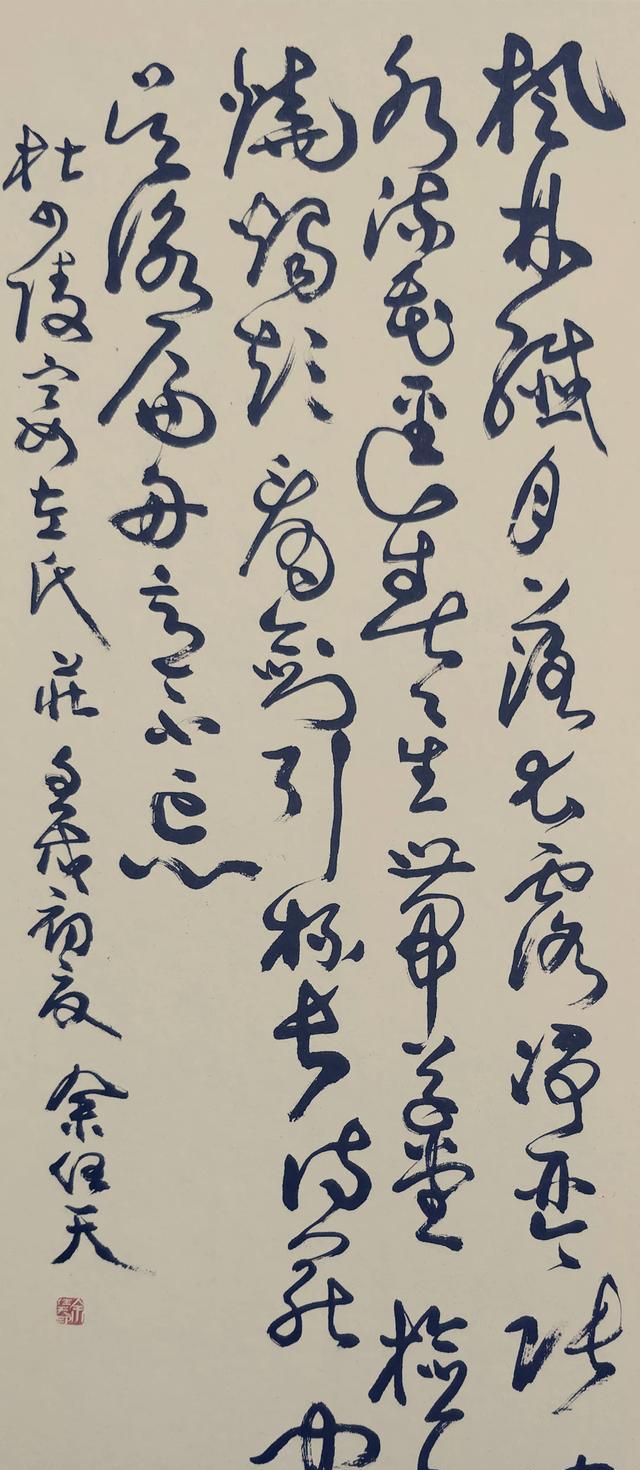 楓林纖月落衣露淨琴張
水流花逕春星帶草堂檢
燒燭短看劍引杯長詩罷
吳詠扁舟意不忘
杜少陵宴左氏莊 壬戌初夏 余任天